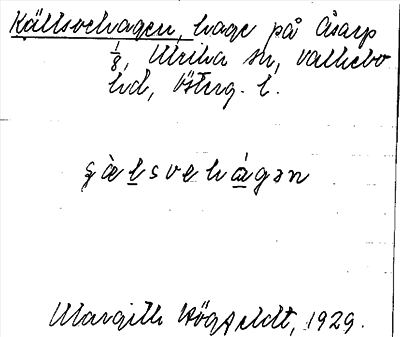 Källsvehagen, hage på Åsarp
1/8, Ulrika sn, Vallebo
hd, Österg. l.
çàlsvehágən
Margith Högfeldt, 1929.